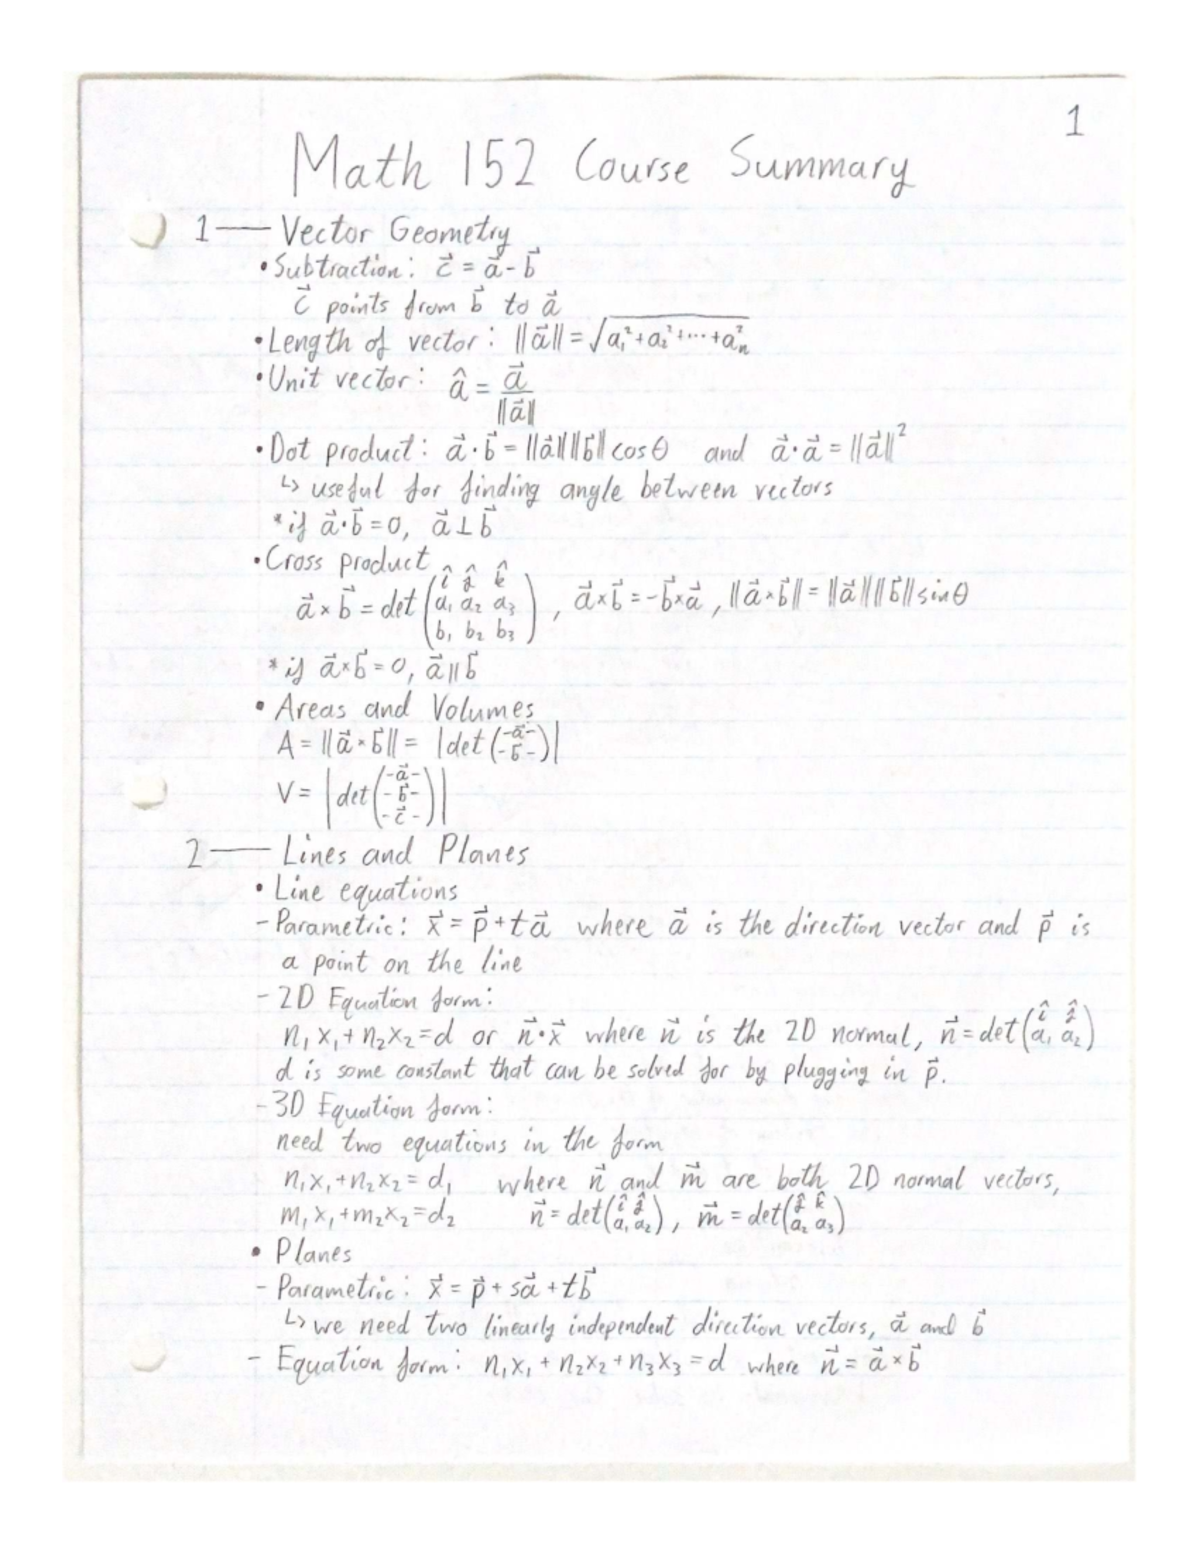 1
Math 152 Course Summary
1 — Vector Geometry
• Subtraction: c⃗ = a⃗ - b⃗
c⃗ points from b⃗ to a⃗
• Length of vector: ||a⃗|| = √(a₁² + a₂² + ... + aₙ²)
• Unit vector: â = a⃗ / ||a⃗||
• Dot product: a⃗·b⃗ = ||a⃗|| ||b⃗|| cosθ and a⃗·a⃗ = ||a⃗||²
↳ useful for finding angle between vectors
* if a⃗·b⃗ = 0, a⃗ ⊥ b⃗
• Cross product
a⃗ × b⃗ = det (î ĵ k̂ ; a₁ a₂ a₃ ; b₁ b₂ b₃), a⃗×b⃗ = -b⃗×a⃗, ||a⃗×b⃗|| = ||a⃗|| ||b⃗|| sinθ
* if a⃗×b⃗ = 0, a⃗ || b⃗
• Areas and Volumes
A = ||a⃗×b⃗|| = |det (-a⃗- ; -b⃗-)|
V = |det (-a⃗- ; -b⃗- ; -c⃗-)|
2 — Lines and Planes
• Line equations
- Parametric: x⃗ = p⃗ + ta⃗ where a⃗ is the direction vector and p⃗ is
a point on the line
- 2D Equation form:
n₁x₁ + n₂x₂ = d or n⃗·x⃗ where n⃗ is the 2D normal, n⃗ = det (î ĵ ; a₁ a₂)
d is some constant that can be solved for by plugging in p⃗.
- 3D Equation form:
need two equations in the form
n₁x₁ + n₂x₂ = d₁ where n⃗ and m⃗ are both 2D normal vectors,
m₁x₁ + m₂x₂ = d₂ n⃗ = det (î ĵ ; a₁ a₂), m⃗ = det (ĵ k̂ ; a₂ a₃)
• Planes
- Parametric: x⃗ = p⃗ + sa⃗ + tb⃗
↳ we need two linearly independent direction vectors, a⃗ and b⃗
- Equation form: n₁x₁ + n₂x₂ + n₃x₃ = d where n⃗ = a⃗ × b⃗